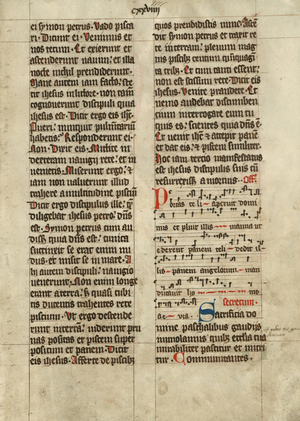 cxxviiij
ei symon petrus. Vado pisca
ri. Dicunt ei. Venimus et
nos tecum. Et exierunt et
ascenderunt navim: et illa
nocte nichil prendiderunt.
Mane autem iam facto: ste
tit ihesus in litore. non tam
cognouerunt discipuli quia
ihesus est. Dicit ergo eis ihs.
Pueri. nunquid pulmentariū
habetis? Responderunt ei.
Non. Dicit eis. Mittite in
dexteram nauigii rete: et in
uenietis. Miserunt ergo. &
iam non ualebant illud
trahere a multitudine pisciū.
Dicit ergo discipulus ille. quē
diligebat ihesus petro. dn̄s
est. Symon petrus cum au
disset quia dn̄s est. tunica
succinxit se erat enim nu
dus et misit se in mare. A
lii autem discipuli nauigio
uenerunt. Non enim longe
erant a terra. sed quasi cubi
tis ducentis trahentes rete
pisciū. Ut ergo descende
runt in terrā. uiderunt pru
nas positas et piscem super
positum et panem. Dicit
eis ihesus. Afferte de piscib;
quos prendidistis nunc. Ascē
dit symon petrus et traxit re
te in terram. plenum mag
nis piscib; centum quinquagī
ta trib;. Et cum tanti essent:
non est scissum rete. Dicit eis
ihesus. Venite prandete. Et
nemo audebat discumben
cium interrogare eum tu
quis es. scientes quia dn̄s ē.
Et uenit ihs et accepit panē
et dat eis. et piscem similiter.
Hoc iam tercio manifestatus
est ihesus discipulis suis cū
resurrexisset a mortuis. Off.
Por
tas celi aperuit domi
nus et pluit illis manna ut
ederent panem celi dedit il
lis panem angelorum man
ducauit homo
Secretum.
Sacrificia do
mine paschalibus gaudiis
immolamus. quib; ecclesia tua
mirabiliter pascitur et nutri
tur. Communicantes.